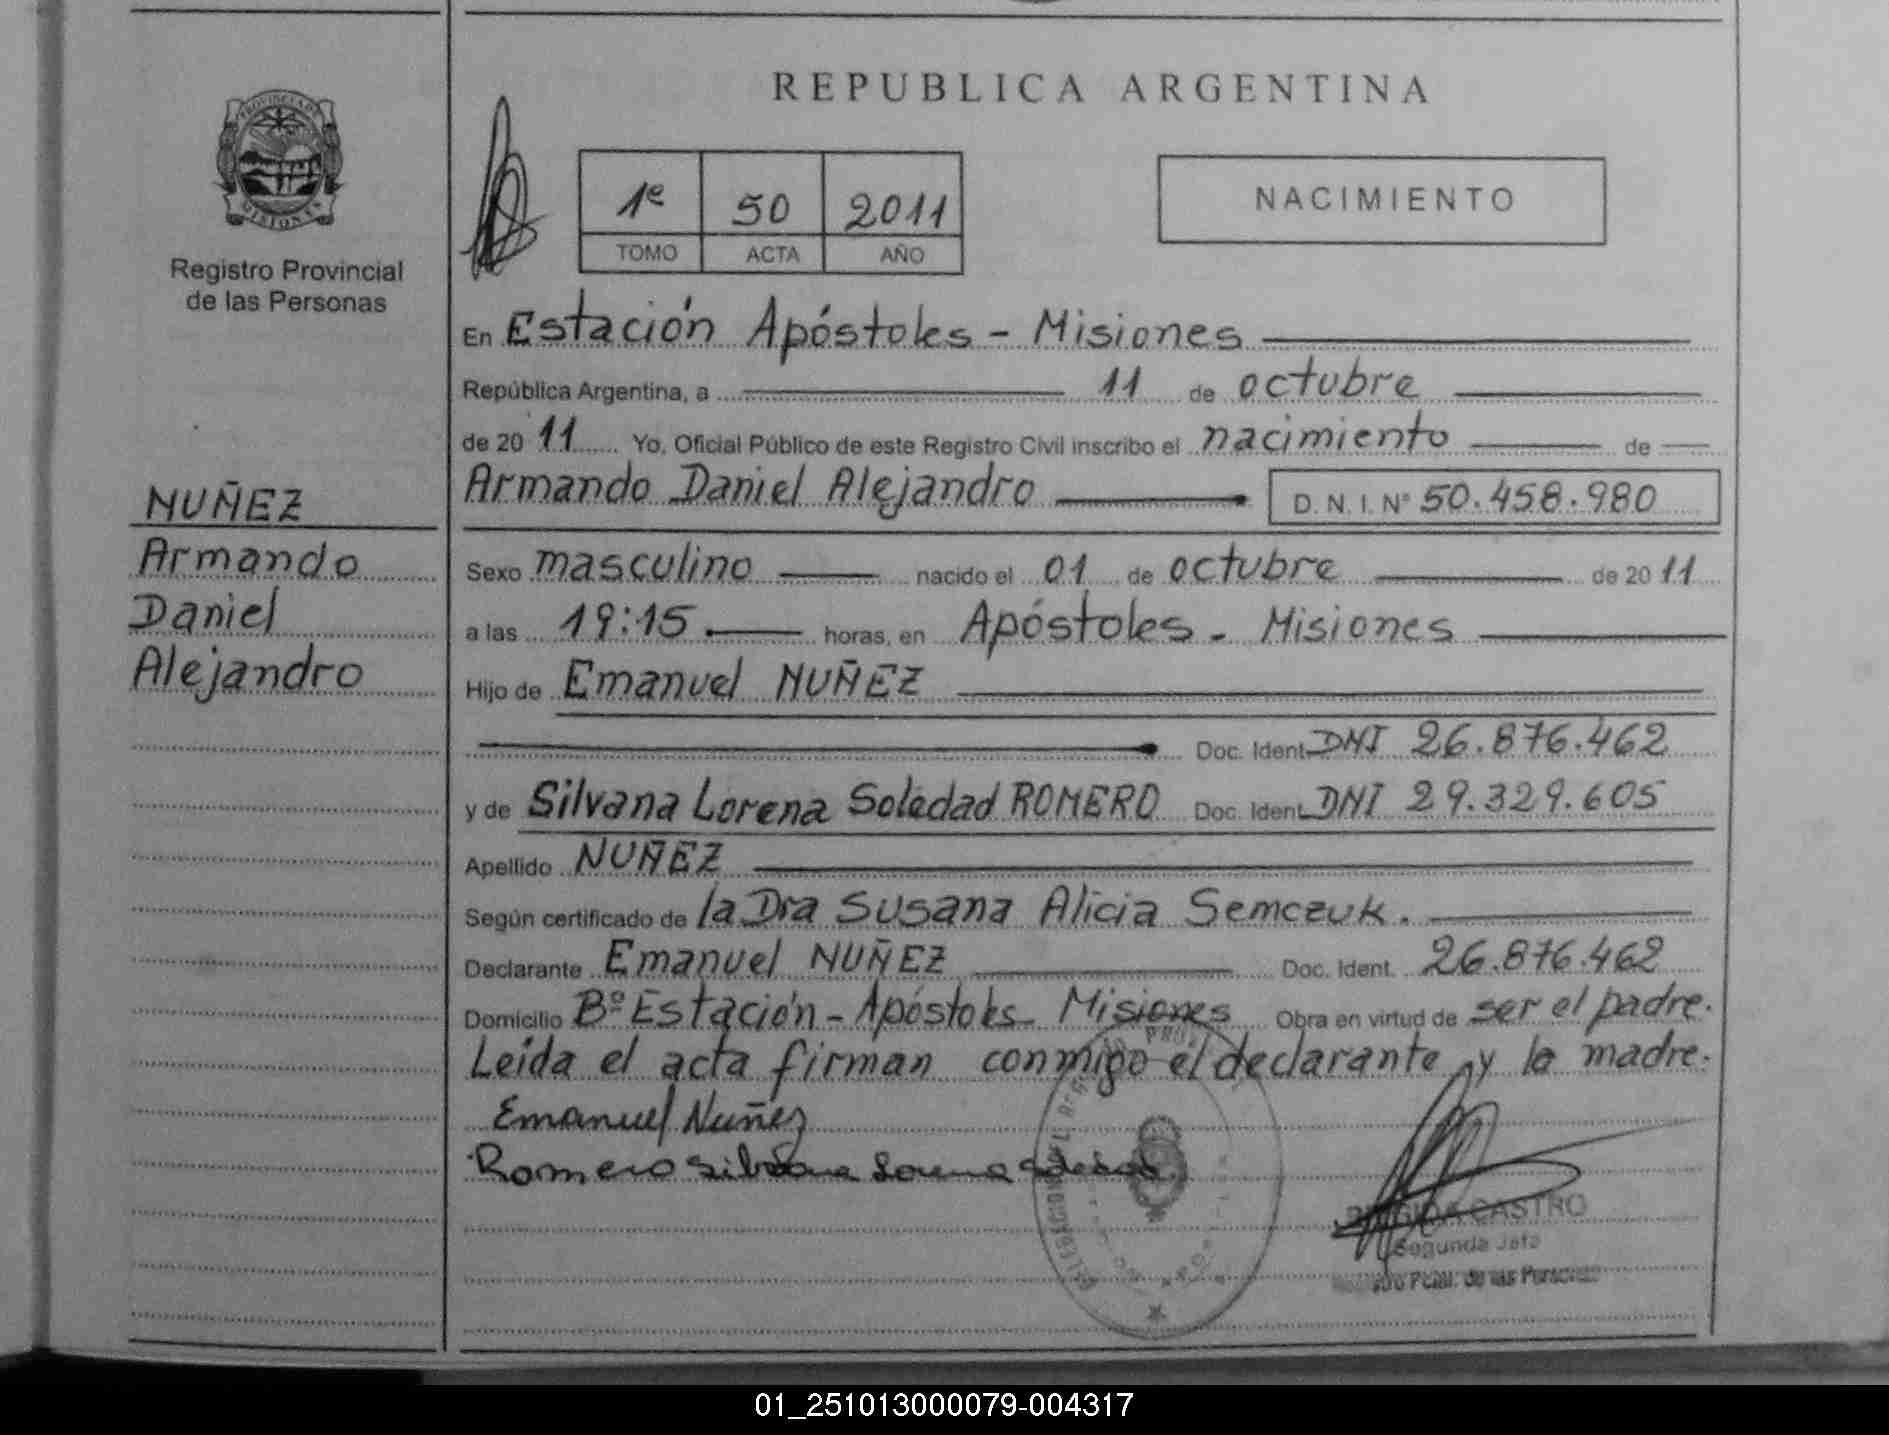 PROVINCIA DE
MISIONES
Registro Provincial
de las Personas
NUÑEZ
Armando
Daniel
Alejandro
REPUBLICA ARGENTINA
1º 50 2011
TOMO ACTA AÑO
NACIMIENTO
En Estación Apóstoles - Misiones
República Argentina, a 11 de octubre
de 20 11 Yo, Oficial Público de este Registro Civil inscribo el nacimiento de
Armando Daniel Alejandro D. N. I. Nº 50.458.980
Sexo masculino nacido el 01 de octubre de 20 11
a las 19:15 horas, en Apóstoles - Misiones
Hijo de Emanuel NUÑEZ
Doc. Ident. DNI 26.876.462
y de Silvana Lorena Soledad ROMERO Doc. Ident. DNI 29.329.605
Apellido NUÑEZ
Según certificado de la Dra Susana Alicia Semczuk.
Declarante Emanuel NUÑEZ Doc. Ident. 26.876.462
Domicilio Bº Estación - Apóstoles Misiones Obra en virtud de ser el padre.
Leída el acta firman conmigo el declarante y la madre.
Emanuel Nuñez
Romero Silvana Lorena Soledad
CASTRO
Segunda Jefa
de las Personas
01_251013000079-004317